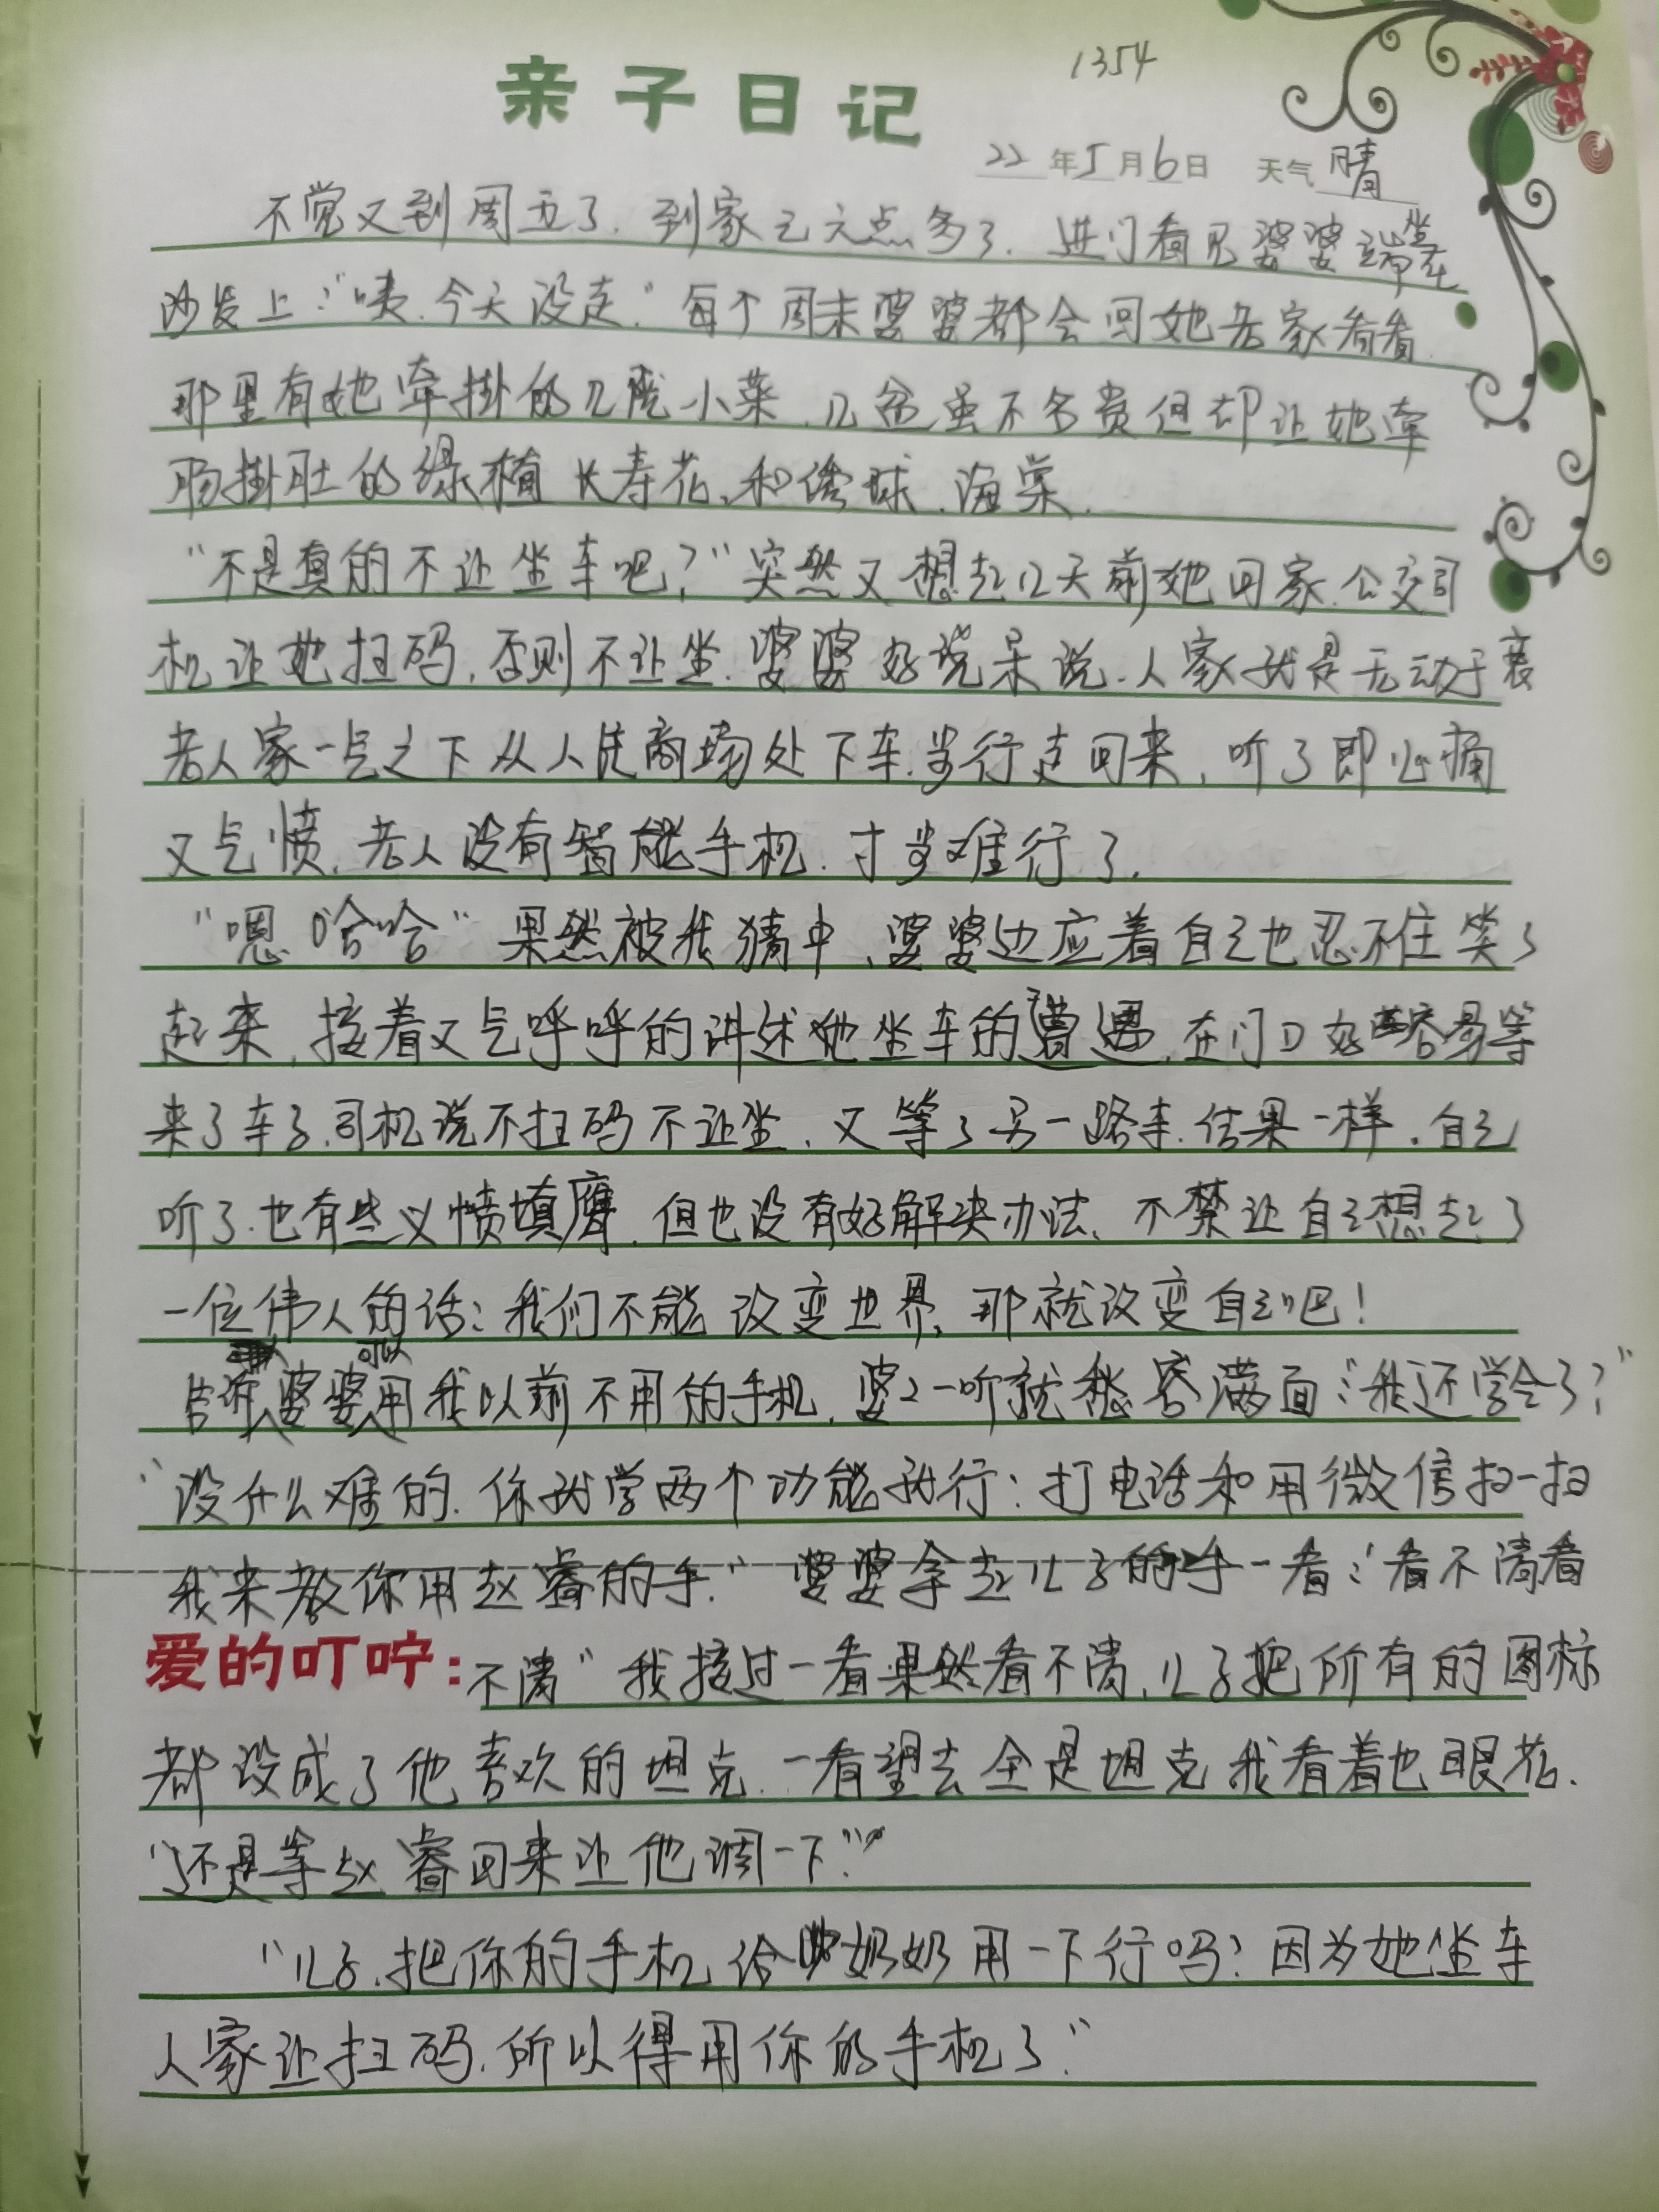 1354
亲子日记
22年5月6日 天气 晴
不觉又到周五了.到家已六点多了.进门看见婆婆端坐在
沙发上:"咦.今天没走."每个周末婆婆都会回她老家看看.
那里有她牵掛的几畦小菜.几盆虽不名贵但却让她牵
肠掛肚的绿植长寿花、和绣球.海棠.
"不是真的不让坐车吧?"突然又想起几天前她回家.公交司
机让她扫码,否则不让坐.婆婆好说呆说.人家就是无动于衷
老人家一气之下从人民商场处下车.步行走回来,听了即心痛
又气愤.老人没有智能手机.寸步难行了.
"嗯哈哈"果然被我猜中、婆婆边应着自己也忍不住笑了
起来,接着又气呼呼的讲述她坐车的遭遇.在门口好容易等
来了车了.司机说不扫码不让坐.又等了另一路车.结果一样.自己
听了.也有些义愤填膺.但也没有好解决办法、不禁让自己想起了
一位伟人的话:我们不能改变世界,那就改变自己吧!
告诉婆婆可以用我以前不用的手机.婆2一听就愁容满面:"我还学会了?"
"没什么难的.你就学两个功能就行:打电话和用微信扫一扫
我来教你用赵睿的手."婆婆拿起儿子的手一看:"看不清看
爱的叮咛:不清"我接过一看果然看不清,儿子把所有的图标
都设成了他喜欢的坦克.一看望去全是坦克我看着也眼花.
"还是等赵睿回来让他调一下."
"儿子.把你的手机给奶奶用一下行吗?因为她坐车
人家让扫码.所以得用你的手机了."